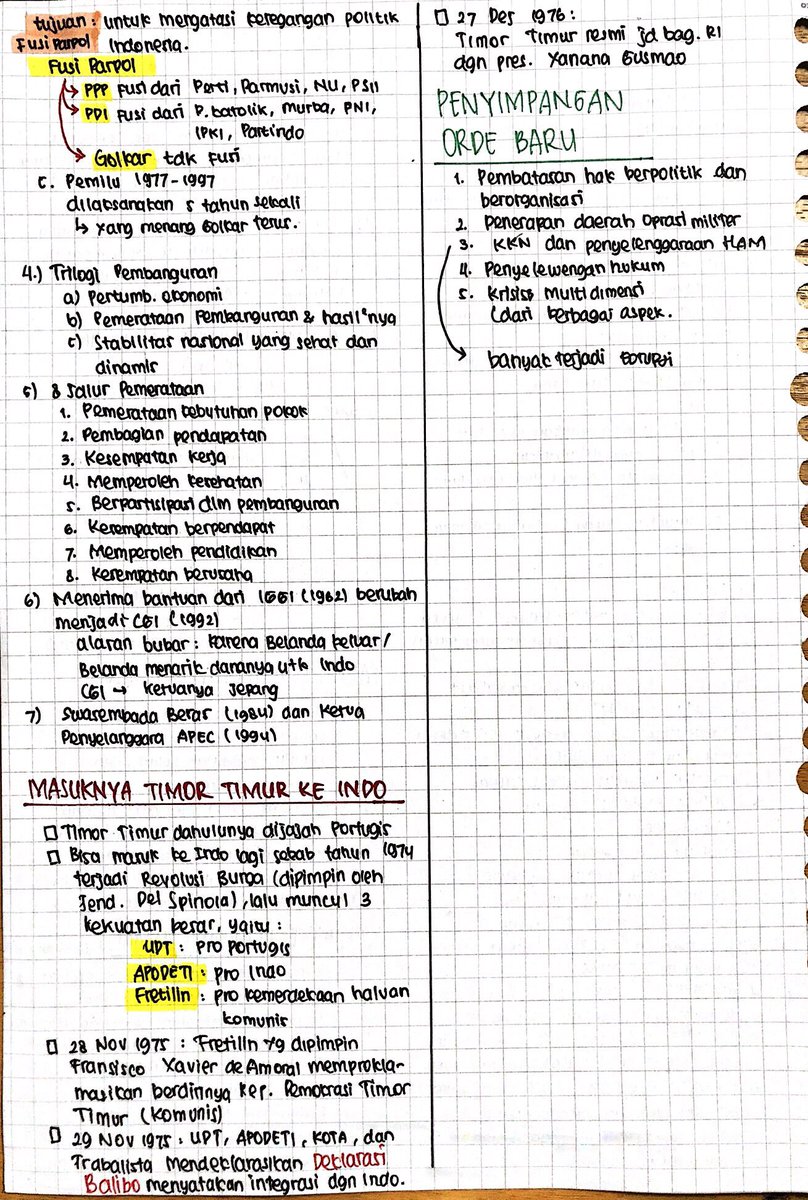 tujuan : untuk mengatasi ketegangan politik
Fusi Parpol Indonesia.
Fusi Parpol
PPP fusi dari Perti, Parmusi, NU, PSII
PDI fusi dari P. Katolik, Murba, PNI,
IPKI, Partindo
Golkar tdk fusi
c. Pemilu 1977-1997
dilaksanakan 5 tahun sekali
↳ yang menang Golkar terus.
4.) Trilogi Pembangunan
a) Pertumb. ekonomi
b) Pemerataan Pembangunan & hasil²nya
c) Stabilitas nasional yang sehat dan
dinamis
5) 8 Jalur Pemerataan
1. Pemerataan kebutuhan pokok
2. Pembagian pendapatan
3. Kesempatan kerja
4. Memperoleh kesehatan
5. Berpartisipasi dlm pembangunan
6. Kesempatan berpendapat
7. Memperoleh pendidikan
8. Kesempatan berusaha
6) Menerima bantuan dari IGGI (1962) berubah
menjadi CGI (1992)
alasan bubar : karena Belanda keluar /
Belanda menarik dananya utk Indo
CGI → ketuanya Jepang
7) Swasembada Beras (1984) dan Ketua
Penyelanggara APEC (1994)
MASUKNYA TIMOR TIMUR KE INDO
□ Timor Timur dahulunya dijajah Portugis
□ Bisa masuk ke Indo lagi sebab tahun 1974
terjadi Revolusi Bunga (dipimpin oleh
Jend. Del Spinola), lalu muncul 3
kekuatan besar, yaitu :
UDT : pro Portugis
APODETI : pro Indo
Fretilin : pro kemerdekaan haluan
komunis
□ 28 Nov 1975 : Fretilin yg dipimpin
Fransisco Xavier de Amoral memprokla-
masikan berdirinya Rep. Demokrasi Timor
Timur (komunis)
□ 29 Nov 1975 : UPT, APODETI, KOTA, dan
Trabalista mendeklarasikan Deklarasi
Balibo menyatakan integrasi dgn Indo.
□ 27 Des 1976 :
Timor Timur resmi jd bag. RI
dgn pres. Xanana Gusmao
PENYIMPANGAN
ORDE BARU
1. Pembatasan hak berpolitik dan
berorganisasi
2. Penerapan daerah oprasi militer
3. KKN dan penyelenggaraan HAM
4. Penyelewengan hukum
5. Krisiss multidimensi
(dari berbagai aspek.
banyak terjadi korupsi